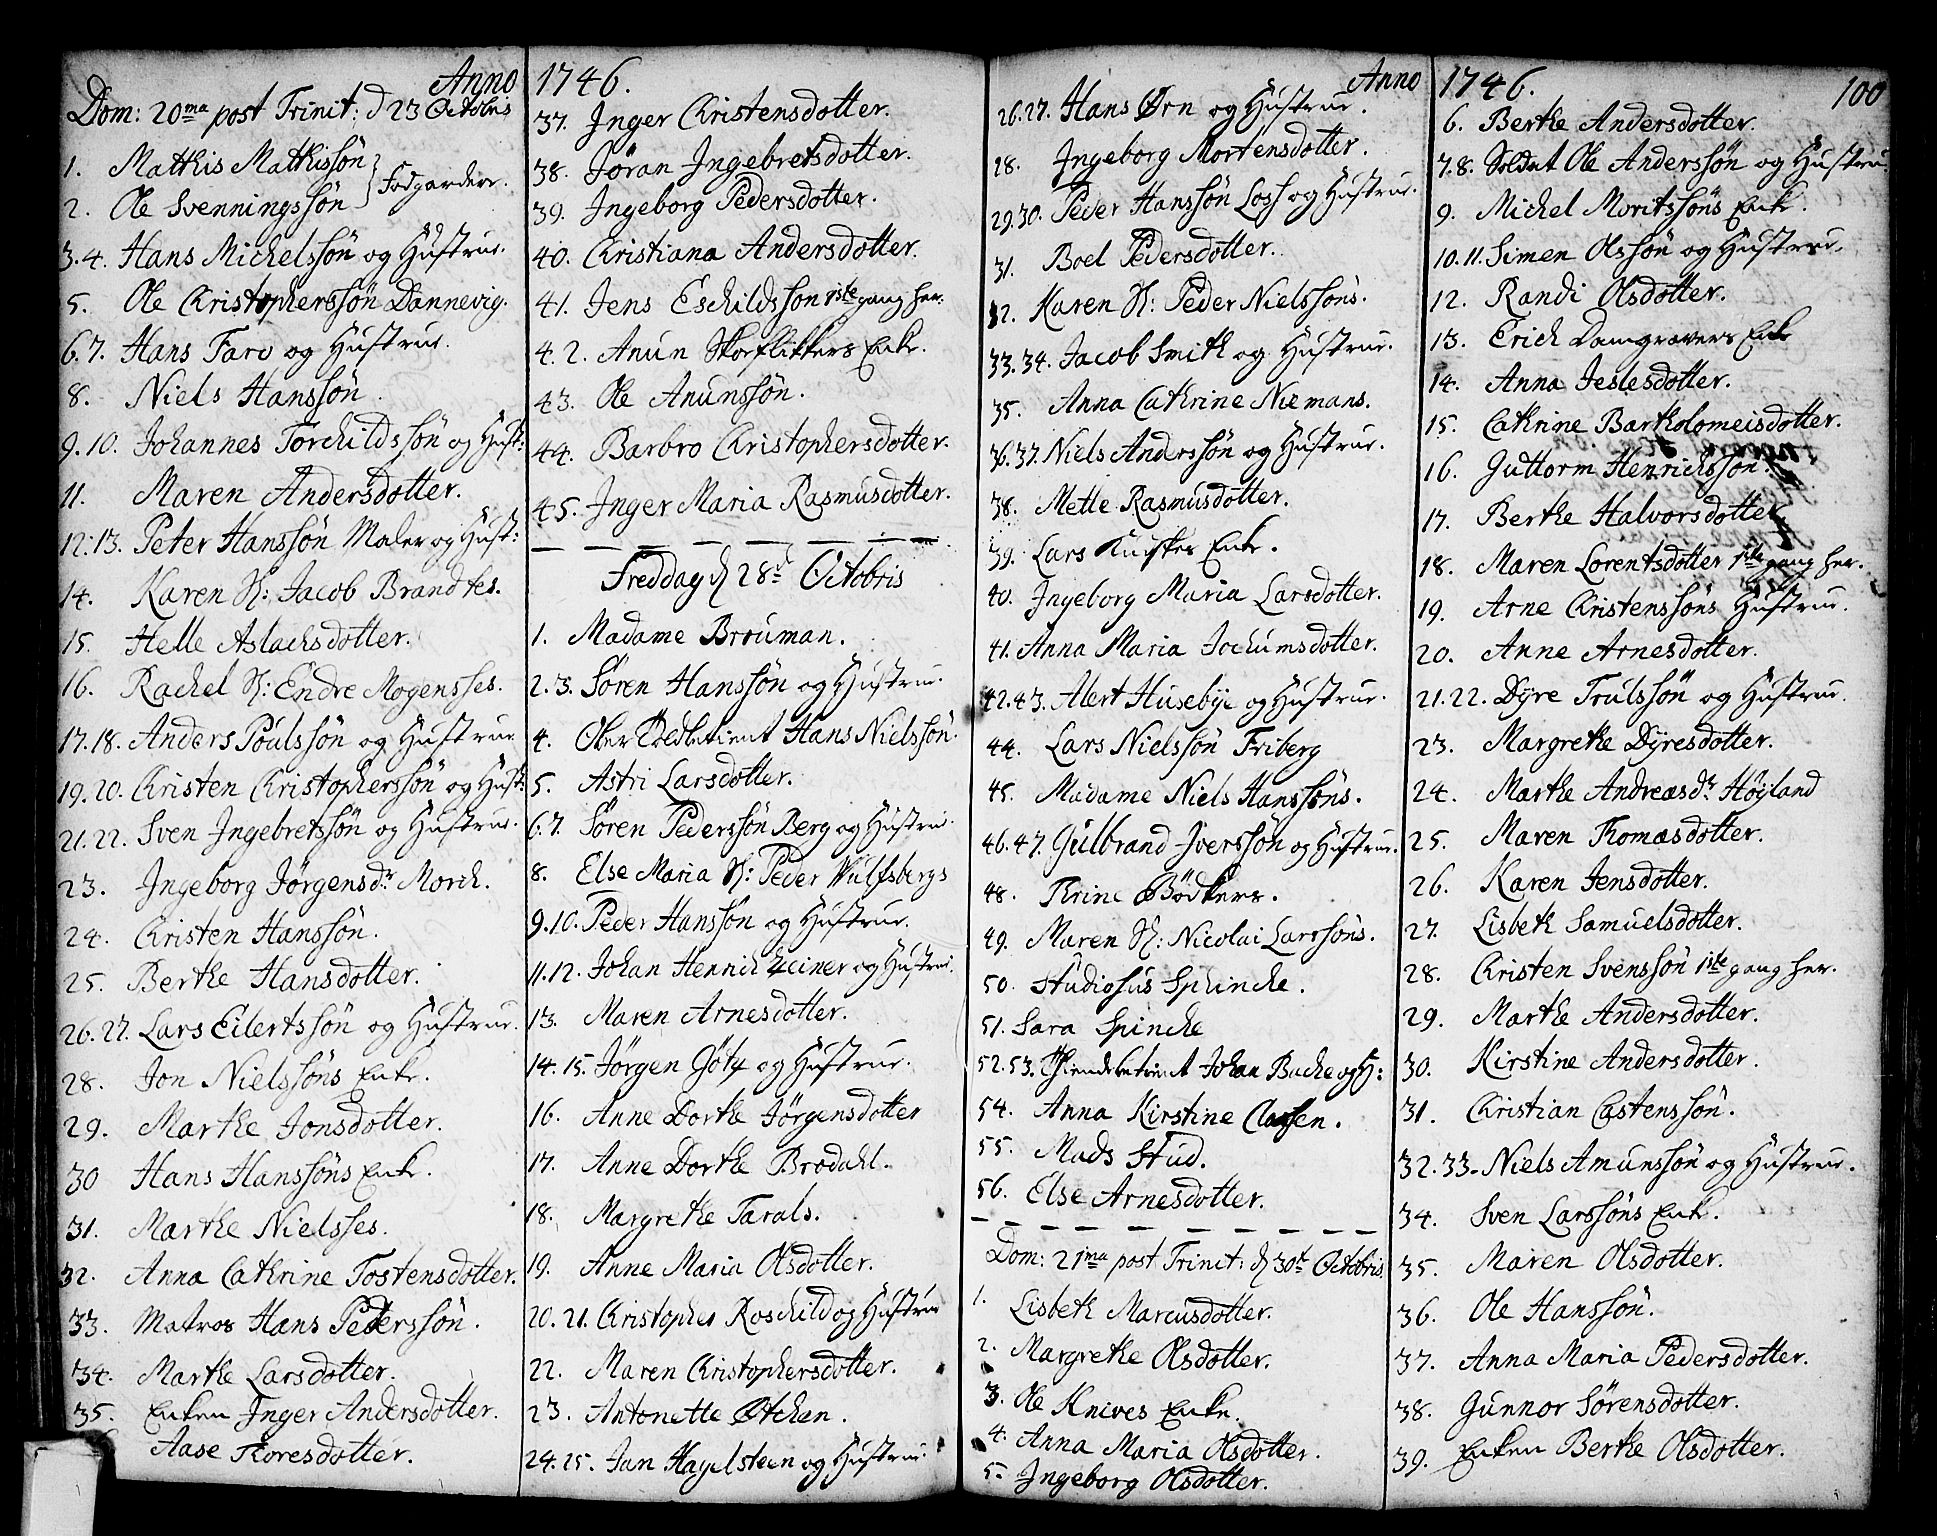 Anno 1746.
Dom: 20ma post Trinit: d 23 Octobris
1. Mathis Mathissön } Fodgarder.
2. Ole Svenningssön
3.4. Hans Michelssön og Hüstrue.
5. Ole Christopherssön Dannevig.
6.7. Hans Faro og Hustrue.
8. Niels Hanssön.
9.10. Johannes Torchildssön og Hust:
11. Maren Andersdotter.
12.13. Peter Hanssön Maler og Hust:
14. Karen H: Jacob Brandtes.
15. Helle Aslachsdotter.
16. Rachel H: Endre Mogensses.
17.18. Anders Poulssön og Hustrue
19.20. Christen Christopherssön og Hust:
21.22. Sven Ingebretssön og Hustrue.
23. Ingeborg Jörgensdr Morch.
24. Christen Hanssön.
25. Berthe Hansdotter.
26.27. Lars Eilertssön og Hustrue.
28. Jon Nielssöns Enke.
29. Marthe Jonsdotter.
30 Hans Hanssöns Enke.
31. Marthe Nielsses.
32. Anna Cathrine Tostensdotter.
33. Matros Hans Pederssön.
34. Marthe Larsdotter.
35. Enken Inger Andersdotter.
Aase Thoresdotter.
37. Inger Christensdotter.
38. Jöran Ingebretsdotter.
39. Ingeborg Pedersdotter.
40. Christiana Andersdotter.
41. Jens Eschildssön 1ste gang her.
42. Anun Skoflikkers Enke.
43. Ole Anunssön.
44. Barbro Christophersdotter.
45. Inger Maria Rasmusdotter.
Freddag d 28de Octobris
1. Madame Brouman.
2.3. Sören Hanssön og Hustrue.
4. Ober Toldbetient Hans Nielssön.
5. Astri Larsdotter.
6.7. Sören Pederssön Berg og Hustrue.
8. Else Maria H: Peder Wulfsbergs
9.10. Peder Hanssön og Hustrue.
11.12. Johan Henrich og Hustrue.
13. Maren Arnesdotter.
14.15. Jörgen Götz og Hustrue.
16. Anne Dorthe Jörgensdotter
17. Anne Dorthe Brodahl.
18. Margrethe Tarals.
19. Anne Maria Olsdotter.
20.21. Christopher Roschild og Hustrue
22. Maren Christophersdotter.
23. Antonette Otchen.
24.25. Jan Hagelsteen og Hustrue.
Anno 1746. 100
26.27. Hans Örn og Hustrue.
28. Ingeborg Mortensdotter.
29.30. Peder Hanssön Loss og Hustrue.
31. Boel Pedersdotter.
32. Karen H: Peder Nielssöns.
33.34. Jacob Smith og Hustrue.
35. Anna Cathrine Niemans.
36.37. Niels Anderssön og Hustrue.
38. Mette Rasmusdotter.
39. Lars Enke.
40. Ingeborg Maria Larsdotter.
41. Anna Maria Jochumsdotter.
42.43. Alert Husebye og Hustrue.
44. Lars Nielssön Friberg
45. Madame Niels Hanssöns.
46.47. Gulbrand Iverssön og Hustrue.
48. Thrine Bödkers.
49. Maren H: Nicolai Larssöns.
50. Studiosus Sphincke.
51. Sara Spincke
52.53. Johan Buche og H:
54. Anna Kirstine Classen.
55. Mads Stud.
56. Else Arnesdotter.
Dom: 21ma post Trinit: d 30te Octobris
1. Lisbeth Marcusdotter.
2. Margrethe Olsdotter.
3. Ole Knives Enke.
4. Anna Maria Olsdotter.
5. Ingeborg Olsdotter.
6. Berthe Andersdotter.
7.8. Soldat Ole Anderssön og Hustrue.
9. Michel Moritssöns Enke.
10.11. Simen Olssön og Hustrue.
12. Randi Olsdotter.
13. Erich Damgravers Enke
14. Anna Jeslesdotter.
15. Cathrine Bartholomeisdotter.
16. Guttorm Henrichssön.
17. Berthe Halvorsdotter
18. Maren Lorentsdotter 1ste gang her.
19. Arne Christenssöns Hustrue.
20. Anne Arnesdotter.
21.22. Dÿre Trulssön og Hustrue.
23. Margrethe Dÿresdotter.
24. Marthe Andreasdr Höyland
25. Maren Thomasdotter.
26. Karen Jensdotter.
27. Lisbeth Samuelsdotter.
28. Christen Svenssön 1ste gang her.
29. Marthe Andersdotter.
30. Kirstine Andersdotter.
31. Christian Castenssön.
32.33. Niels Amunssön og Hustrue.
34. Sven Larssöns Enke.
35. Maren Olsdotter.
36. Ole Hanssön.
37. Anna Maria Pedersdotter.
38. Gunnor Sörensdotter.
39. Enken Berthe Olsdotter.